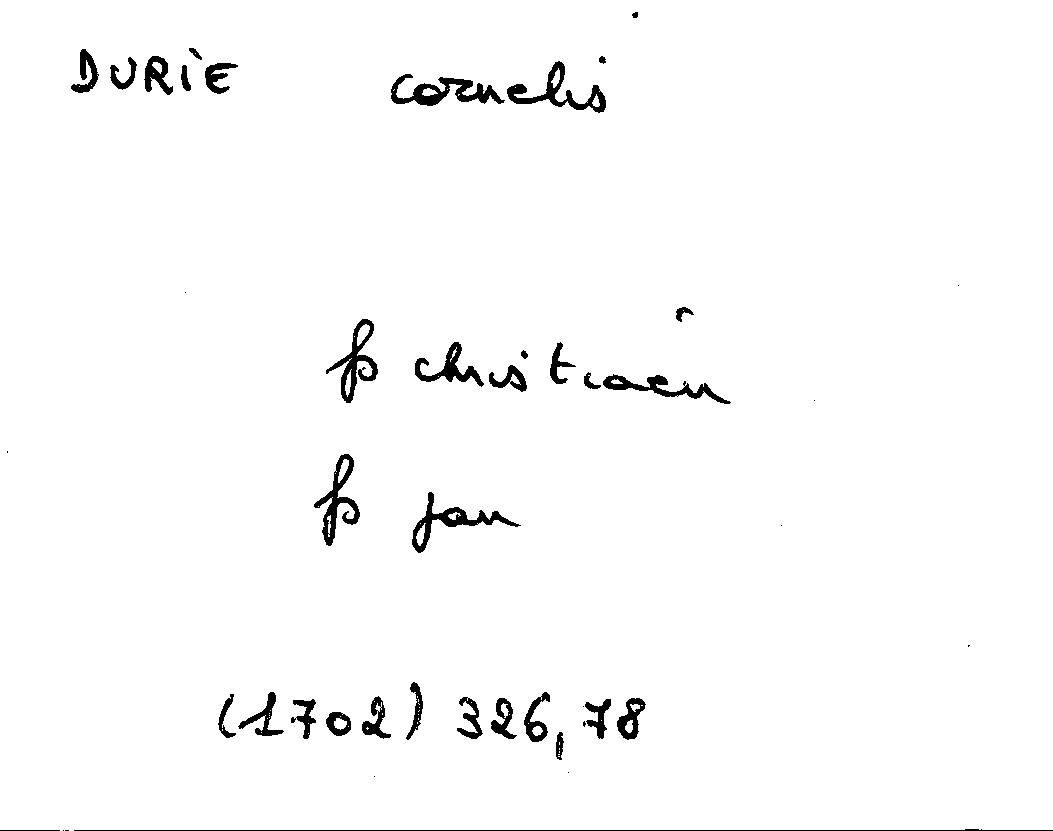 DURIE cornelis
fs christiaen
fs jan
(1702) 326,78